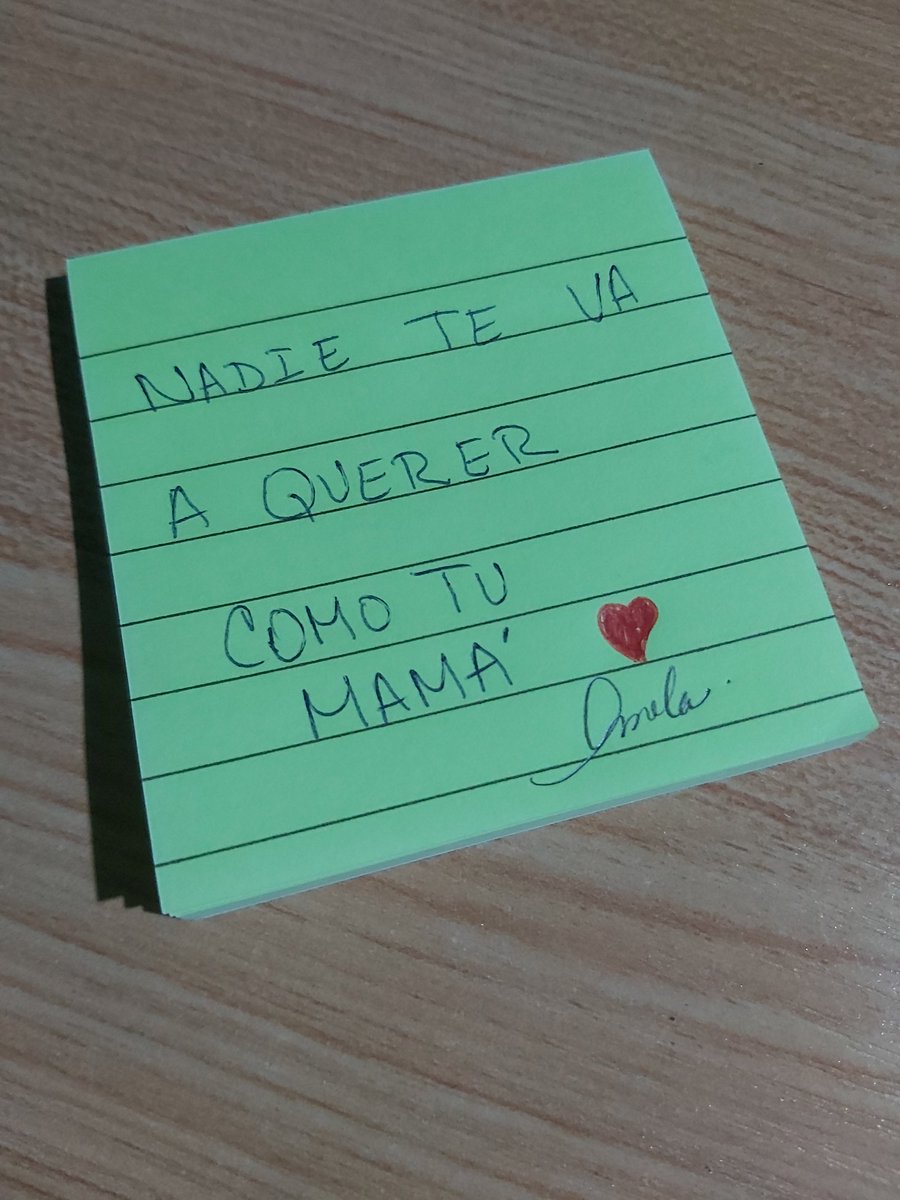 NADIE TE VA
A QUERER
COMO TU
MAMÁ